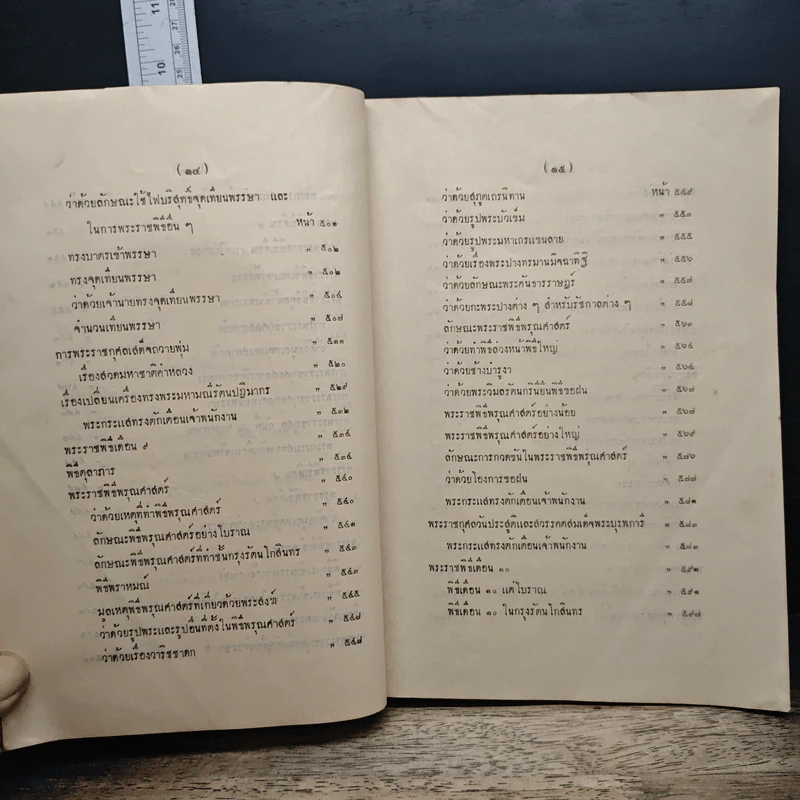 11
10
27
26
25
(๑๔)
ว่าด้วยลักษณะใช้ไฟบริสุทธิ์จุดเทียนพรรษา และ
ในการพระราชพิธีอื่น ๆ หน้า ๕๐๑
ทรงบาตรเข้าพรรษา " ๕๐๒
ทรงจุดเทียนพรรษา " ๕๐๒
ว่าด้วยเจ้านายทรงจุดเทียนพรรษา " ๕๐๔
จำนวนเทียนพรรษา " ๕๐๗
การพระราชกุศลเสด็จถวายพุ่ม " ๕๑๑
เรื่องสวดมหาชาติคำหลวง " ๕๒๐
เรื่องเปลี่ยนเครื่องทรงพระมหามณีรัตนปฏิมากร " ๕๒๙
พระกระแสทรงตักเตือนเจ้าพนักงาน " ๕๓๒
พระราชพิธีเดือน ๙ " ๕๓๔
พิธีตุลาภาร " ๕๓๔
พระราชพิธีพรุณศาสตร์ " ๕๔๐
ว่าด้วยเหตุที่ทำพิธีพรุณศาสตร์ " ๕๔๐
ลักษณะพิธีพรุณศาสตร์อย่างโบราณ " ๕๔๑
ลักษณะพิธีพรุณศาสตร์ที่ทำชั้นกรุงรัตนโกสินทร " ๕๔๓
พิธีพราหมณ์ " ๕๔๓
มูลเหตุพิธีพรุณศาสตร์ที่เกี่ยวด้วยพระสงฆ์ " ๕๔๕
ว่าด้วยรูปพระและรูปอื่นที่ตั้งในพิธีพรุณศาสตร์ " ๕๔๘
ว่าด้วยเรื่องวาริชชาดก " ๕๔๘
(๑๕)
ว่าด้วยสุภูตเถรนิทาน หน้า ๕๔๙
ว่าด้วยรูปพระบัวเข็ม " ๕๕๓
ว่าด้วยรูปพระมหาเถรแขนลาย " ๕๕๕
ว่าด้วยเรื่องพระปางทรมานมิจฉาทิฐิ " ๕๕๖
ว่าด้วยลักษณะพระคันธารราษฎร์ " ๕๕๗
ว่าด้วยกะพระปางต่าง ๆ สำหรับรัชกาลต่าง ๆ " ๕๕๘
ลักษณะพระราชพิธีพรุณศาสตร์ " ๕๖๓
ว่าด้วยทำพิธีล่วงหน้าพิธีใหญ่ " ๕๖๔
ว่าด้วยช้างบำรูงา " ๕๖๔
ว่าด้วยพระวิมลรัตนกิรินียืนพิธีขอฝน " ๕๖๗
พระราชพิธีพรุณศาสตร์อย่างน้อย " ๕๖๗
พระราชพิธีพรุณศาสตร์อย่างใหญ่ " ๕๖๙
ลักษณะการกวดขันในพระราชพิธีพรุณศาสตร์ " ๕๗๖
ว่าด้วยโองการขอฝน " ๕๗๗
พระกระแสทรงตักเตือนเจ้าพนักงาน " ๕๘๑
พระราชกุศลวันประสูติและสวรรคตสมเด็จพระบุรพการี " ๕๘๓
พระกระแสทรงตักเตือนเจ้าพนักงาน " ๕๘๓
พระราชพิธีเดือน ๑๐ " ๕๙๑
พิธีเดือน ๑๐ แต่โบราณ " ๕๙๑
พิธีเดือน ๑๐ ในกรุงรัตนโกสินทร " ๕๙๘